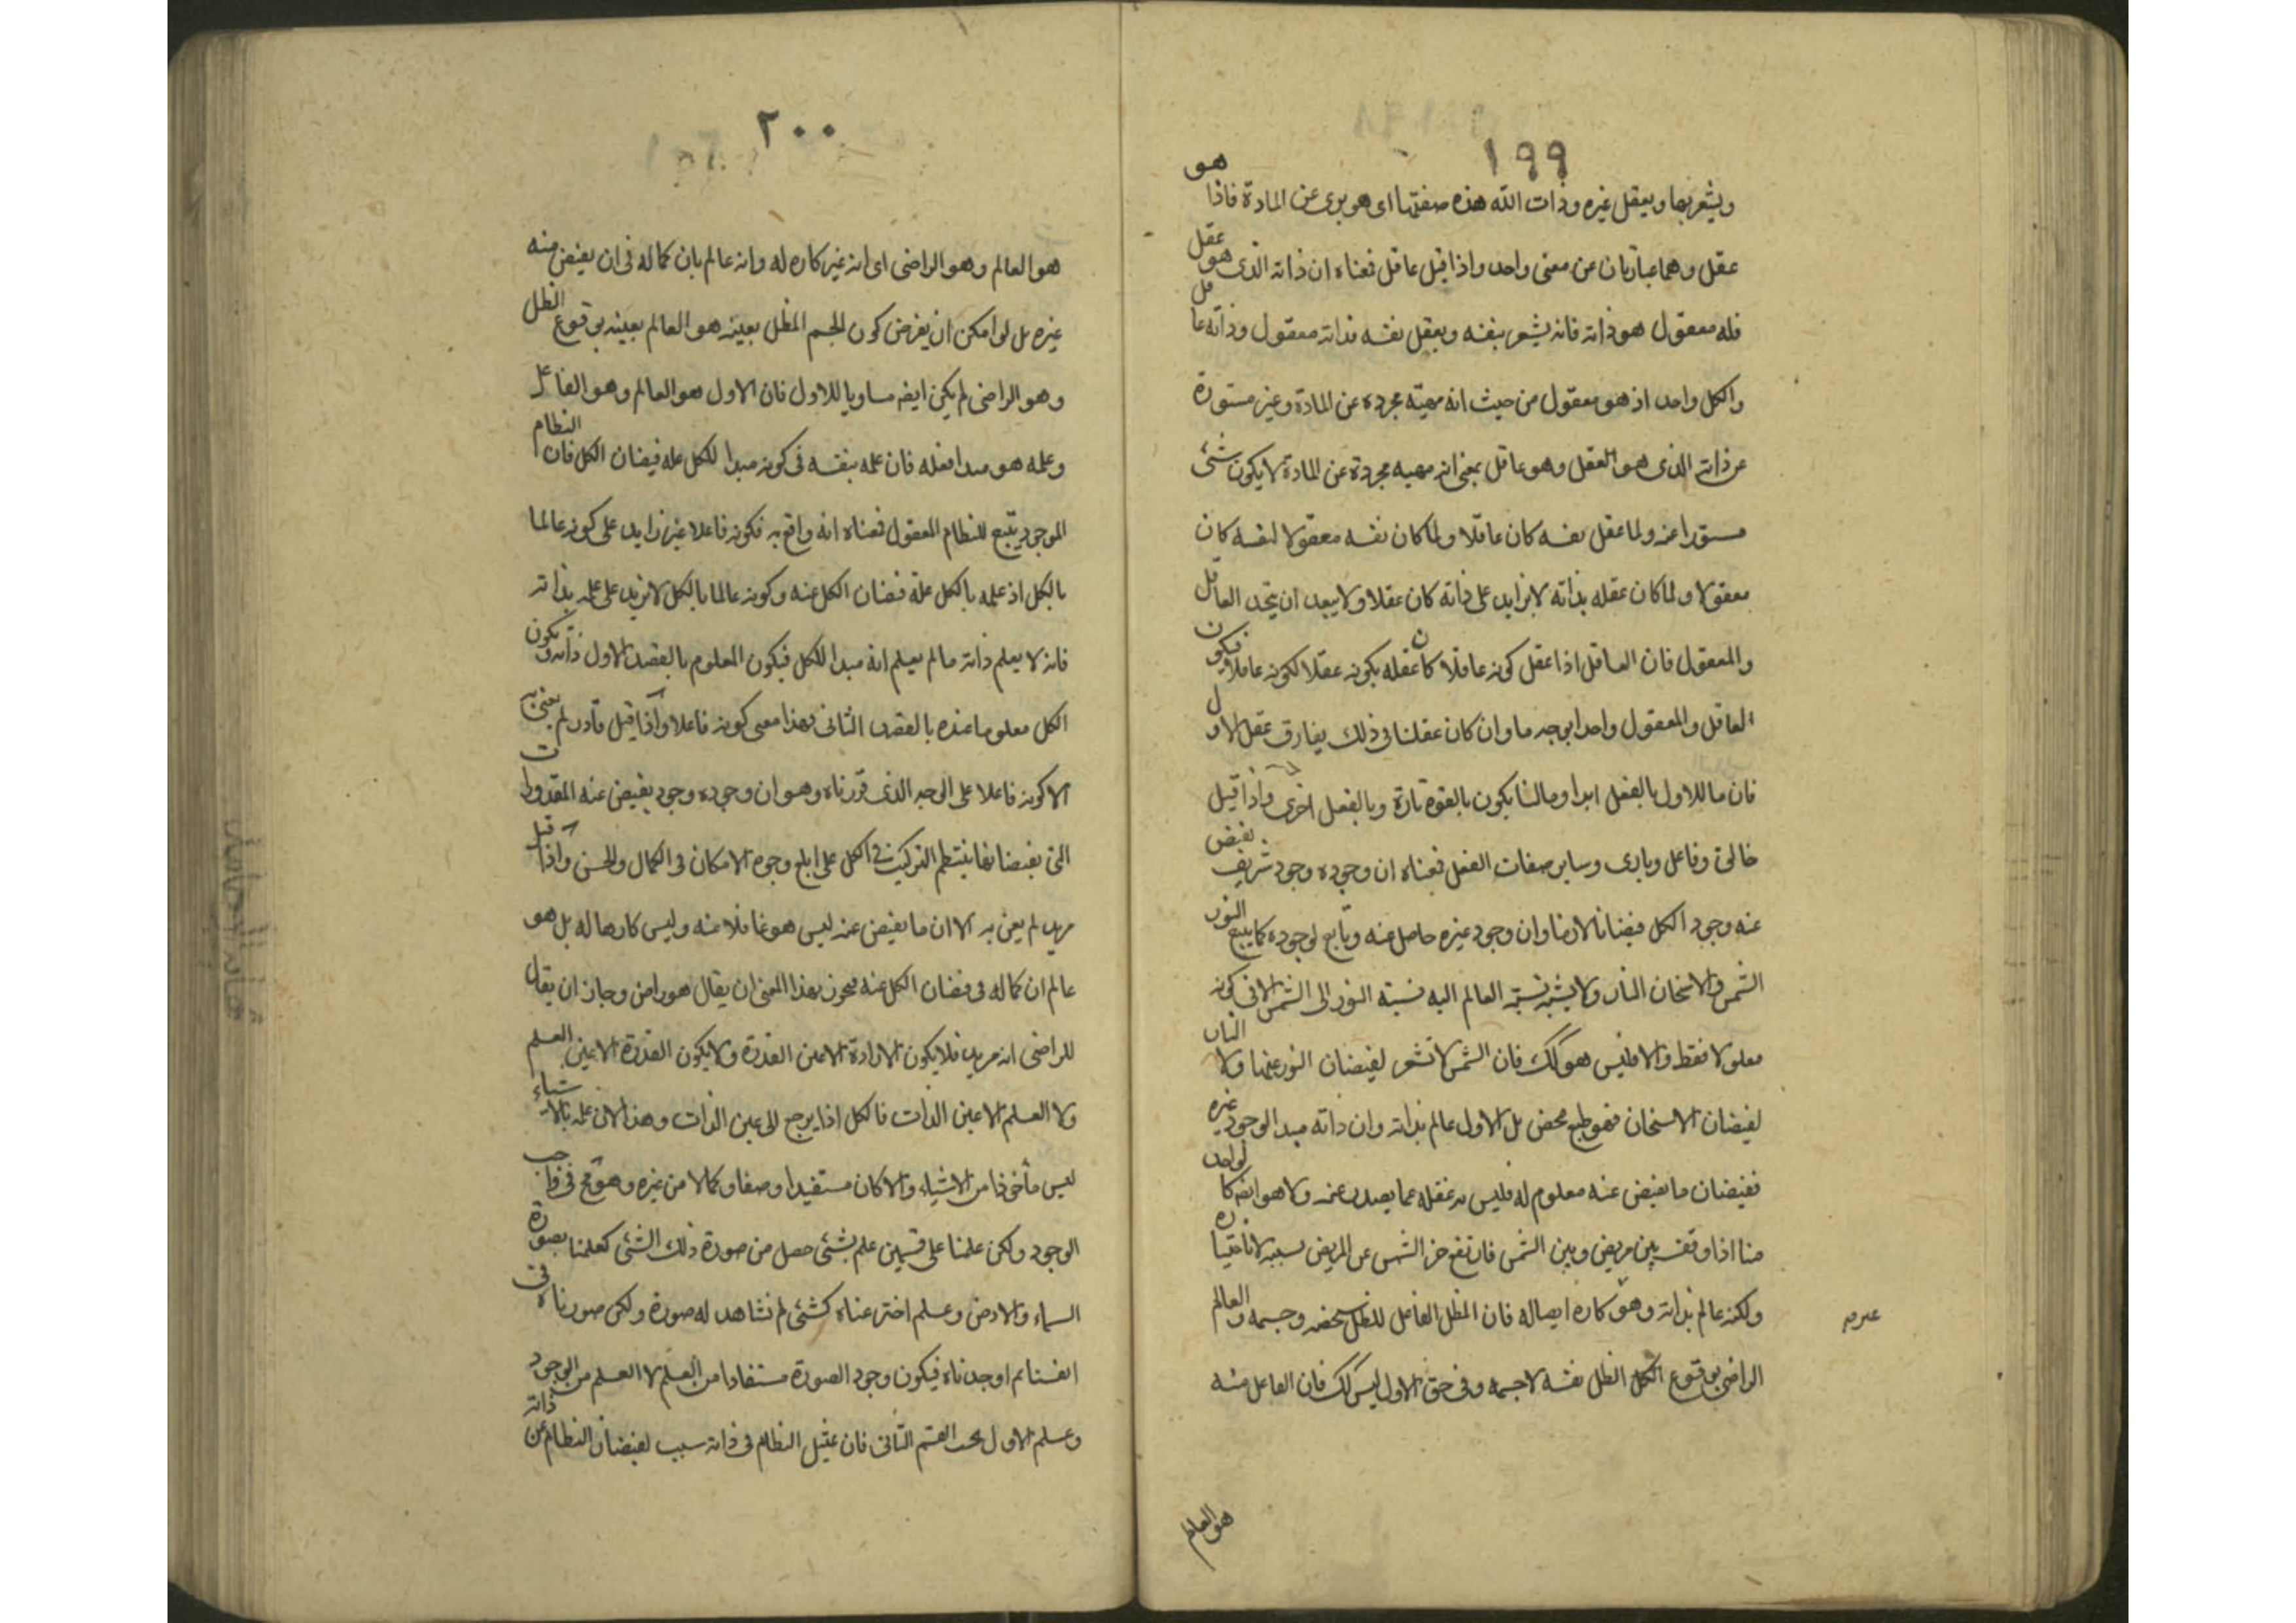 ١٩٩
ويشعر بها ويعقل غيره وذات الله هذه صفتها اى هو برى عن المادة فاذا هو
عقل وهما عبارتان عن معنى واحد واذا قيل عاقل فمعناه ان ذاته الذى هو عقل
فله معقول هو ذاته فانه يشعر بنفسه ويعقل نفسه فذاته معقول وذاته عاقل
والكل واحد اذ هو معقول من حيث انه مهية مجردة عن المادة وغير مستورة
عن ذاته الذى هو العقل وهو عاقل بمعنى انه مهيه مجردة عن المادة لا يكون شئ
مستورا عنه ولما عقل نفسه كان عاقلا ولما كان نفسه معقولا لنفسه كان
معقولا ولما كان عقله بذاته لا بزايد على ذاته كان عقلا ولا يبعد ان يتحد العاقل
والمعقول فان العاقل اذا عقل كونه عاقلا كان عقله بكونه عقلا لكونه عاقلا فيكون
العاقل والمعقول واحدا بوجه ما وان كان عقلنا فى ذلك يفارق عقل الاول
فان ما للاول بالفعل ابدا وما لنا يكون بالقوة تارة وبالفعل اخرى واذا قيل
خالق وفاعل وبارى وساير صفات الفعل فمعناه ان وجوده وجود شريف يفيض
عنه وجود الكل فيضانا لازما وان وجود غيره حاصل منه وتابع لوجوده كما يتبع النور
الشمس والاسخان النار ولا يشبه نسبة العالم اليه نسبته النور الى الشمس الا فى كونه
معلولا فقط والا فليس هو كك فان الشمس لا تشعر لفيضان النور عنها ولا النار
لفيضان الاسخان فهو طبع محض بل الاول عالم بذاته وان ذاته مبدا لوجود غيره
ففيضان ما يفيض عنه معلوم له فليس به غفله عما يصدر عنه ولا هو ايضه كالواحد
منا اذا وقف بين مريض وبين الشمس فارتفع حر الشمس عن المريض بسببه لا باختياره
ولكنه عالم بذاته وهو كاره ايضا له فان المظل الفاعل للظل شخصه وجسمه والعالم
الراضى بوقوع الظل نفسه لا جسمه وفى حق الاول ليس كك فان الفاعل منه
هو العالم
٢٠٠
هو العالم وهو الراضى اى انه غير كاره له وانه عالم بان كماله فى ان يفيض منه
غيره بل لو امكن ان يفرض كون الجسم المظل بعينه هو العالم بعينه بوقوع الظل
وهو الراضى لم يكن ايضه مساويا للاول فان الاول هو العالم وهو الفاعل
وعلمه هو مبدا فعله فان علمه بنفسه فى كونه مبدا للكل علة فيضان الكل فان النظام
الموجود يتبع للنظام المعقول فمعناه انه واقع به فكونه فاعلا غير زايد على كونه عالما
بالكل اذ علمه بالكل علة فيضان الكل عنه وكونه عالما بالكل لا يزيد على علمه بذاته
فانه لا يعلم ذاته ما لم يعلم انه مبدا للكل فيكون المعلوم بالقصد الاول ذاته ويكون
الكل معلوما عنده بالقصد الثانى فهذا معنى كونه فاعلا واذا قيل قادر لم يعن به
الا كونه فاعلا على الوجه الذى قررناه وهو ان وجوده وجود يفيض عنه المقدورات
التى بفيضانها ينتظم التركيب فى الكل على ابلغ وجوه الامكان فى الكمال والحسن واذا قيل
مريد لم يعن به الا ان ما يفيض عنه ليس هو غافلا عنه وليس كارها له بل هو
عالم ان كماله فى فيضان الكل عنه فيجوز بهذا المعنى ان يقال هو راض وجاز ان يقال
للراضى انه مريد فلا يكون الارادة الا عين القدرة ولا يكون القدرة الا عين العلم
ولا العلم الا عين الذات فالكل اذا يرجع الى عين الذات وهذا لان علمه بالاشياء
ليس مأخوذا من الاشياء والا كان مستفيدا وصفا وكمالا من غيره وهو مح فى واجب
الوجود ولكن علمنا على قسمين علم بشئ حصل من صورة ذلك الشئ كعلمنا بصورة
السماء والارض وعلم اخترعناه كشئ لم نشاهد له صورة ولكن صورناه فى
انفسنا ثم اوجدناه فيكون وجود الصورة مستفادا من العلم لا العلم من الوجود
وعلم الاول بحسب القسم الثانى فان تمثيل النظام فى ذاته سبب لفيضان النظام عن ذاته